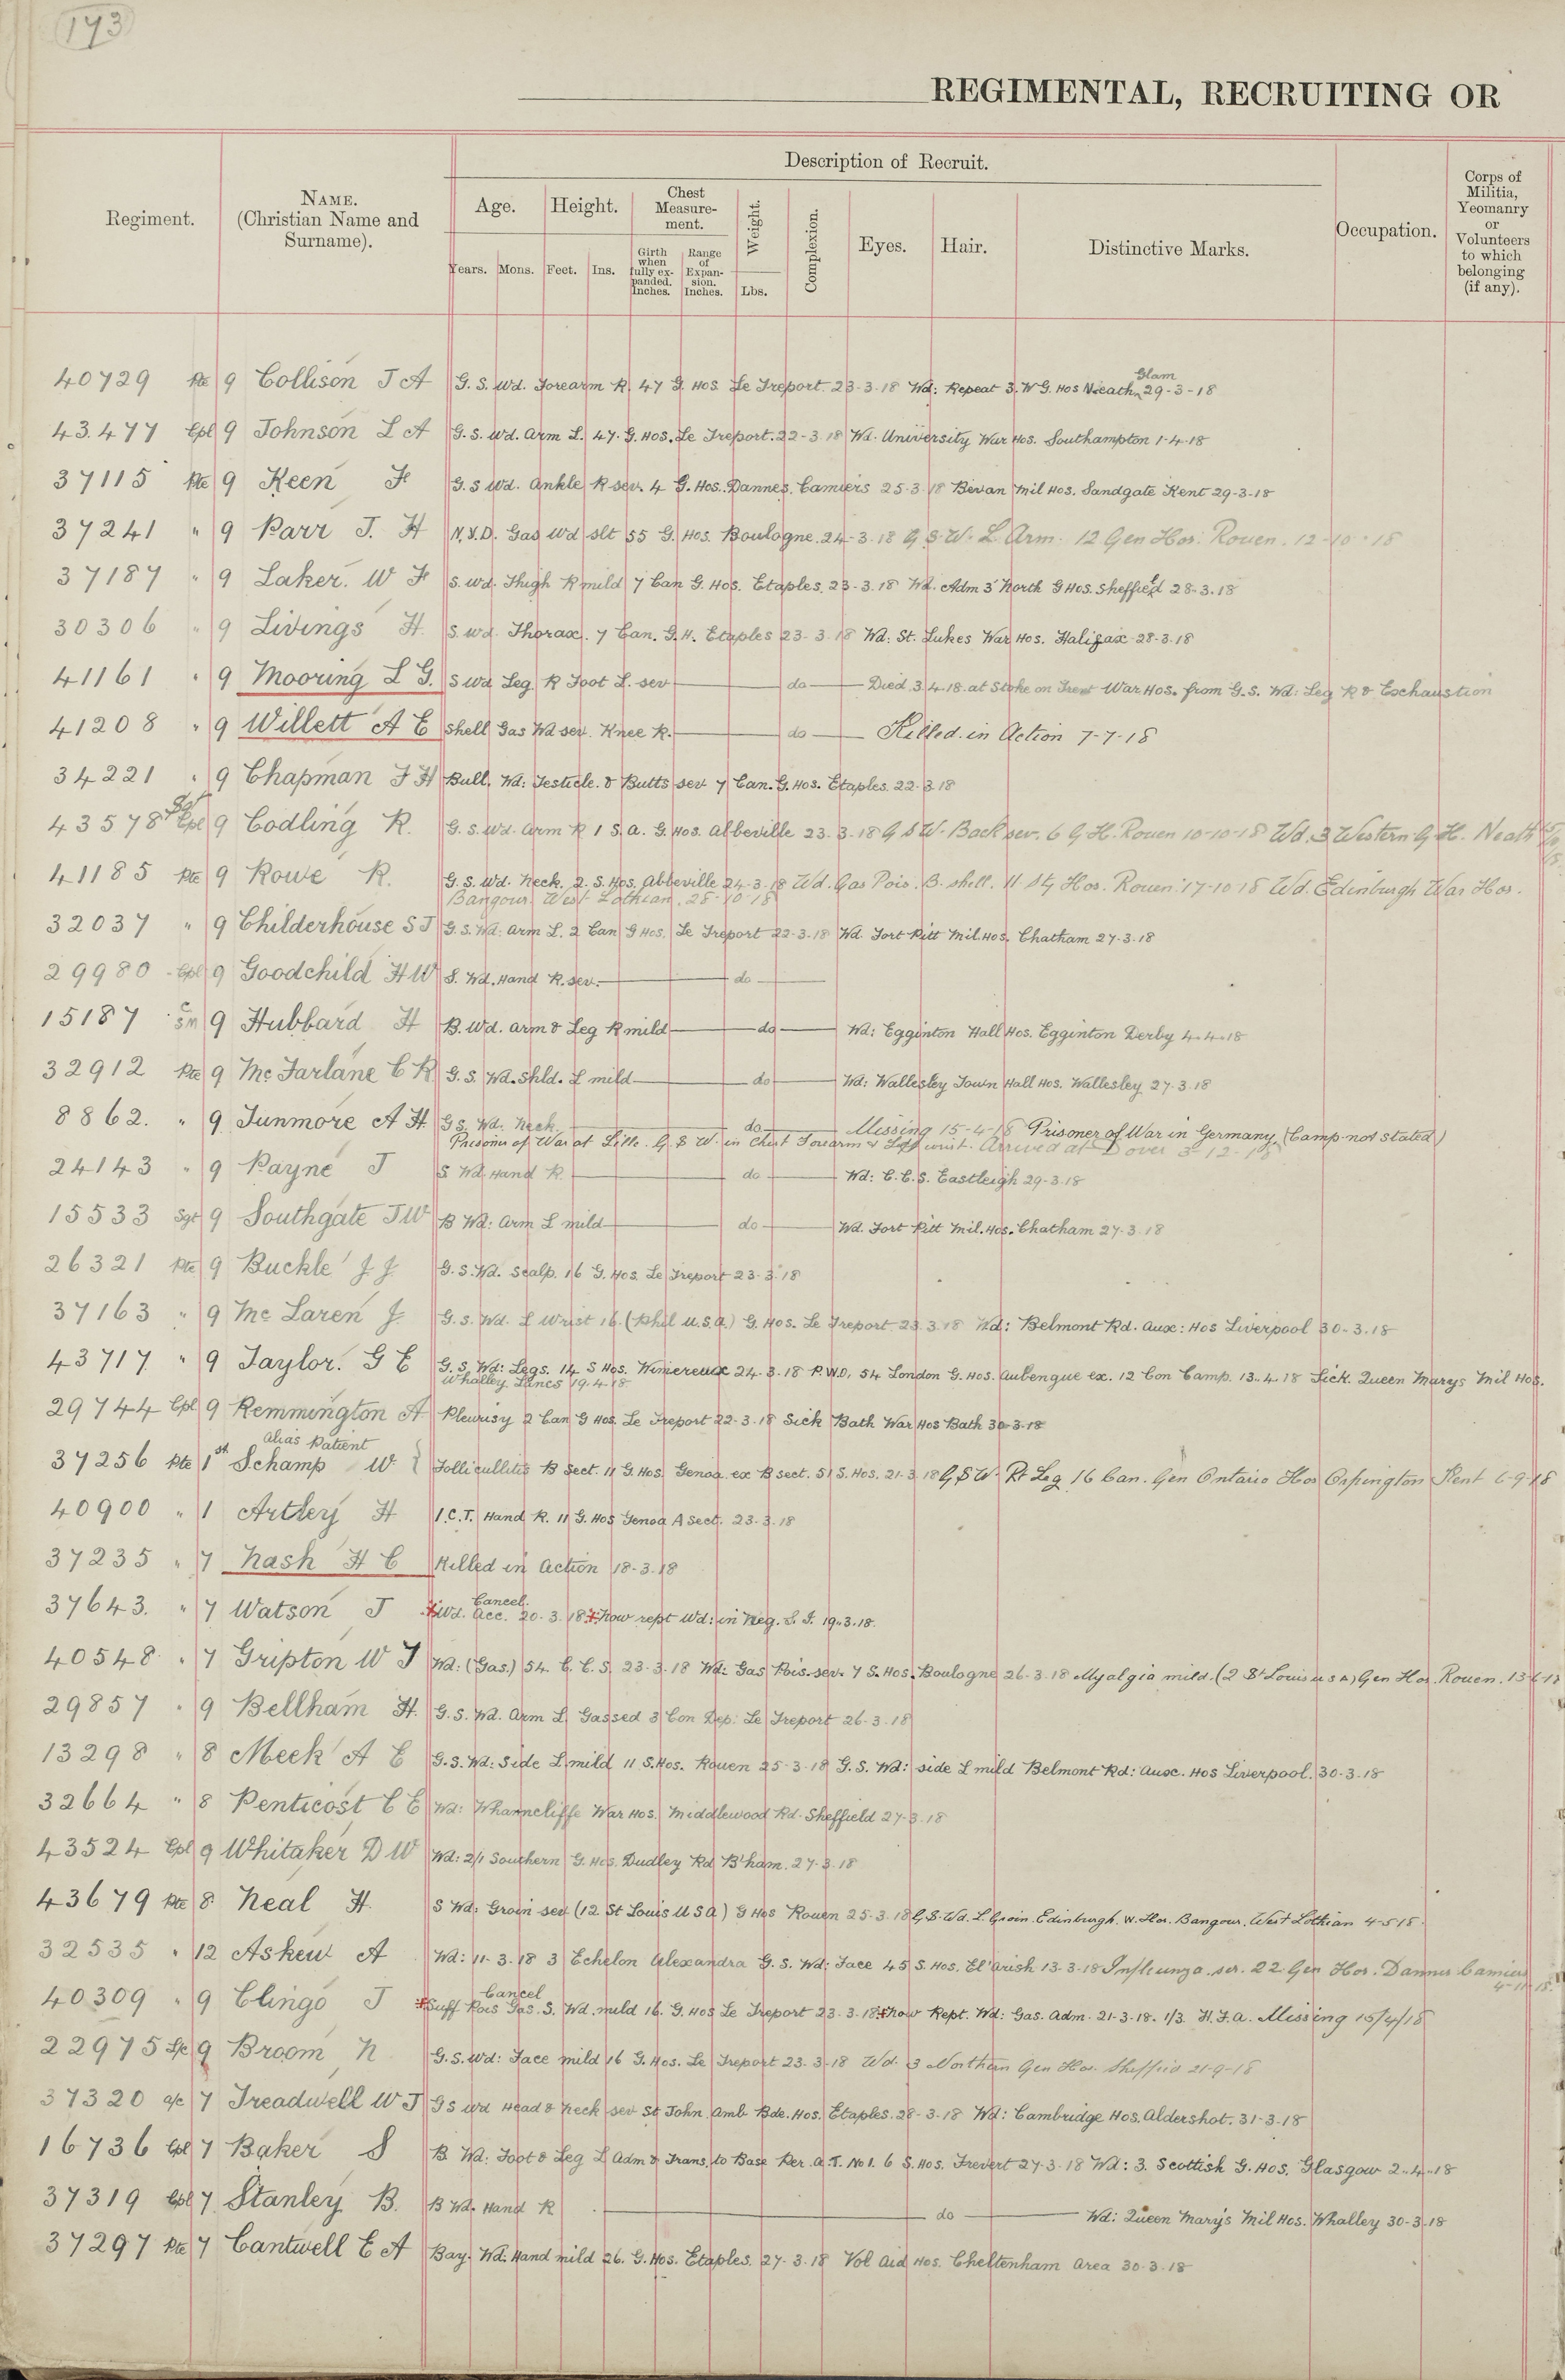 193
REGIMENTAL, RECRUITING OR
Regiment.
NAME.
(Christian Name and
Surname).
Description of Recruit.
Age.
Height.
Chest
Measure-
ment.
Weight.
Complexion.
Eyes.
Hair.
Distinctive Marks.
Occupation.
Corps of
Militia,
Yeomanry
or
Volunteers
to which
belonging
(if any).
Years.
Mons.
Feet.
Ins.
Girth
when
fully ex-
panded.
Inches.
Range
of
Expan-
sion.
Inches.
Lbs.
Glam
40729 Pte 9 Collison J A G. S. Wd. Forearm R. 47 G. Hos. Le Treport. 23-3-18 Wd: Repeat 3. W G. Hos Neath 29-3-18
43477 Cpl 9 Johnson L A G. S. Wd. Arm L. 47. G. Hos. Le Treport. 22-3-18 Wd. University War Hos. Southampton 1-4-18
37115 Pte 9 Keen F G. S Wd. Ankle R sev. 4 G. Hos. Dannes. Camiers 25-3-18 Bevan Mil Hos. Sandgate Kent 29-3-18
37241 " 9 Parr J. H N.Y.D. Gas Wd slt 55 G. Hos. Boulogne. 24-3-18 G. S. W. L. Arm. 12 Gen Hos. Rouen. 12-10-18
37187 " 9 Laker. W F S. Wd. Thigh R mild 7 Can G. Hos. Etaples. 23-3-18 Wd. Adm 3 North G Hos. Sheffield 28-3-18
30306 " 9 Livings H. S. Wd. Thorax. 7 Can. G. H. Etaples 23-3-18 Wd: St. Lukes War Hos. Halifax 28-3-18
41161 " 9 Mooring L G. S Wd Leg R Foot L. sev do Died 3.4.18. at Stoke on Trent War Hos. from G.S. Wd: Leg R & Exhaustion
41208 " 9 Willett A E Shell Gas Wd sev. Knee R. do Killed in Action 7-7-18
34221 " 9 Chapman F H Bull. Wd: Testicle. & Butts sev 7 Can. G. Hos. Etaples. 22.3.18
Sgt
43578 Cpl 9 Codling R. G. S. Wd. Arm R 1 S. A. G. Hos. Abbeville 23-3-18 G S W. Back sev. 6 G. H. Rouen 10-10-18 Wd. 3 Western G H. Neath
41185 Pte 9 Rowe R. G. S. Wd. Neck. 2. S. Hos. Abbeville 24-3-18 Wd. Gas Pois. B. Shell. 11 Sty Hos. Rouen. 17-10-18 Wd. Edinburgh War Hos.
Bangour. West Lothian. 28-10-18
32037 " 9 Childerhouse S J G. S. Wd: Arm L. 2 Can G Hos. Le Treport 22-3-18 Wd. Fort Pitt Mil. Hos. Chatham 27-3-18
29980 Cpl 9 Goodchild H W S. Wd. Hand R. sev. do
15187 C S M 9 Hubbard H B. Wd. Arm & Leg R mild do Wd: Egginton Hall Hos. Egginton Derby 4-4-18
32912 Pte 9 McFarlane C R G. S. Wd. Shld. L mild do Wd: Wallesley Town Hall Hos. Wallesley 27-3-18
8862. " 9 Tunmore A H. G S. Wd. Neck. do Missing 15-4-18 Prisoner of War in Germany (Camp not stated)
Prisoner of War at Lille. G. S. W. in Chest Forearm & Left wrist. Arrived at Dover 3-12-18
24143 " 9 Payne J S Wd Hand R. do Wd: C. C. S. Eastleigh 29-3-18
15533 Sgt 9 Southgate J W B Wd: Arm L mild do Wd. Fort Pitt Mil. Hos. Chatham 27-3-18
26321 Pte 9 Buckle J J G. S. Wd. Scalp. 16 G. Hos. Le Treport 23-3-18
37163 " 9 McLaren J. G. S. Wd. L Wrist 16. (Phil U.S.A.) G. Hos. Le Treport 23-3-18 Wd: Belmont Rd. Aux: Hos Liverpool 30-3-18
43717 " 9 Taylor. G E G. S. Wd: Legs. 14 S Hos. Wimereux 24-3-18 P.W.D. 54 London G. Hos. Aubengue ex. 12 Con Camp. 13-4-18 Sick. Queen Marys Mil Hos.
Whalley Lancs 19.4.18
29744 Cpl 9 Remmington A Pleurisy 2 Can G Hos. Le Treport 22-3-18 Sick Bath War Hos Bath 30-3-18
alias Patient
37256 Pte 1st Schamp W. Follicullitis B Sect. 11 G. Hos. Genoa ex B sect. 51 S. Hos. 21-3-18 G. S W. Rt Leg 16 Can. Gen Ontario Hos Orpington Kent 6-9-18
40900 " 1 Artley H I.C.T. Hand R. 11 G. Hos Genoa A Sect. 23-3-18
37235 " 7 Nash H C Killed in Action 18-3-18
Cancel
37643. " 7 Watson J Wd. Acc. 20-3-18 Now rept Wd: in Neg. S. I. 19-3-18.
40548 " 7 Gripton W J Wd: (Gas.) 54 C. C. S. 23-3-18 Wd: Gas Pois. sev. 7 S. Hos. Boulogne 26-3-18 Myalgia mild. (2 St Louis U S A) Gen Hos. Rouen.
29857 " 9 Bellham H. G. S. Wd. Arm L Gassed 3 Con Dep. Le Treport 26-3-18
13298 " 8 Meek A E G. S. Wd: Side L mild 11 S. Hos. Rouen 25-3-18 G. S. Wd: side L mild Belmont Rd: Aux. Hos Liverpool. 30-3-18
32664 " 8 Penticost C E Wd: Wharncliffe War Hos. Middlewood Rd. Sheffield 27-3-18
43524 Cpl 9 Whitaker D W Wd: 2/1 Southern G. Hos. Dudley Rd B'ham. 27-3-18
43679 Pte 8 Neal H. S Wd: Groin sev (12 St Louis U S A) G Hos Rouen 25-3-18 G. S. Wd. L. Groin. Edinburgh. W. Hos. Bangour. West Lothian 4-5-18
32535 " 12 Askew A Wd: 11-3-18 3 Echelon Alexandra G. S. Wd: Face 45 S. Hos. El'Arish 13-3-18 Influenza. ser. 22 Gen Hos. Dannes Camiers
Cancel
40309 " 9 Clingo J Suff Pois Gas. S. Wd. mild 16. G. Hos Le Treport 23-3-18 Now Rept. Wd: Gas. Adm. 21-3-18. 1/3. H. F. A. Missing 15/4/18
22975 L/c 9 Broom N G. S. Wd: Face mild 16 G. Hos. Le Treport 23-3-18 Wd. 3 Northern Gen Hos. 21-9-18
37320 a/c 7 Treadwell W J G S Wd Head & Neck sev St John Amb Bde. Hos. Etaples. 28-3-18 Wd: Cambridge Hos. Aldershot. 31-3-18
16736 Cpl 7 Baker S B. Wd: Foot & Leg L Adm & Trans. to Base Per. A. T. No 1. 6 S. Hos. Frevert 27-3-18 Wd: 3. Scottish G. Hos. Glasgow 2-4-18
37319 Cpl 7 Stanley B. B Wd. Hand R do Wd: Queen Mary's Mil Hos. Whalley 30-3-18
37297 Pte 7 Cantwell E A Bay. Wd. Hand mild 26. G. Hos. Etaples. 27-3-18 Vol Aid Hos. Cheltenham Area 30-3-18